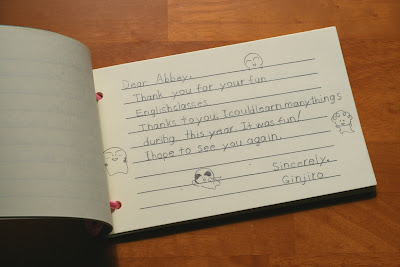 Dear Abbey,
Thank you for your fun
Englishclasses.
Thanks to you, I could learn many things
during this year. It was fun!
I hope to see you again.
Sincerely,
Ginjiro